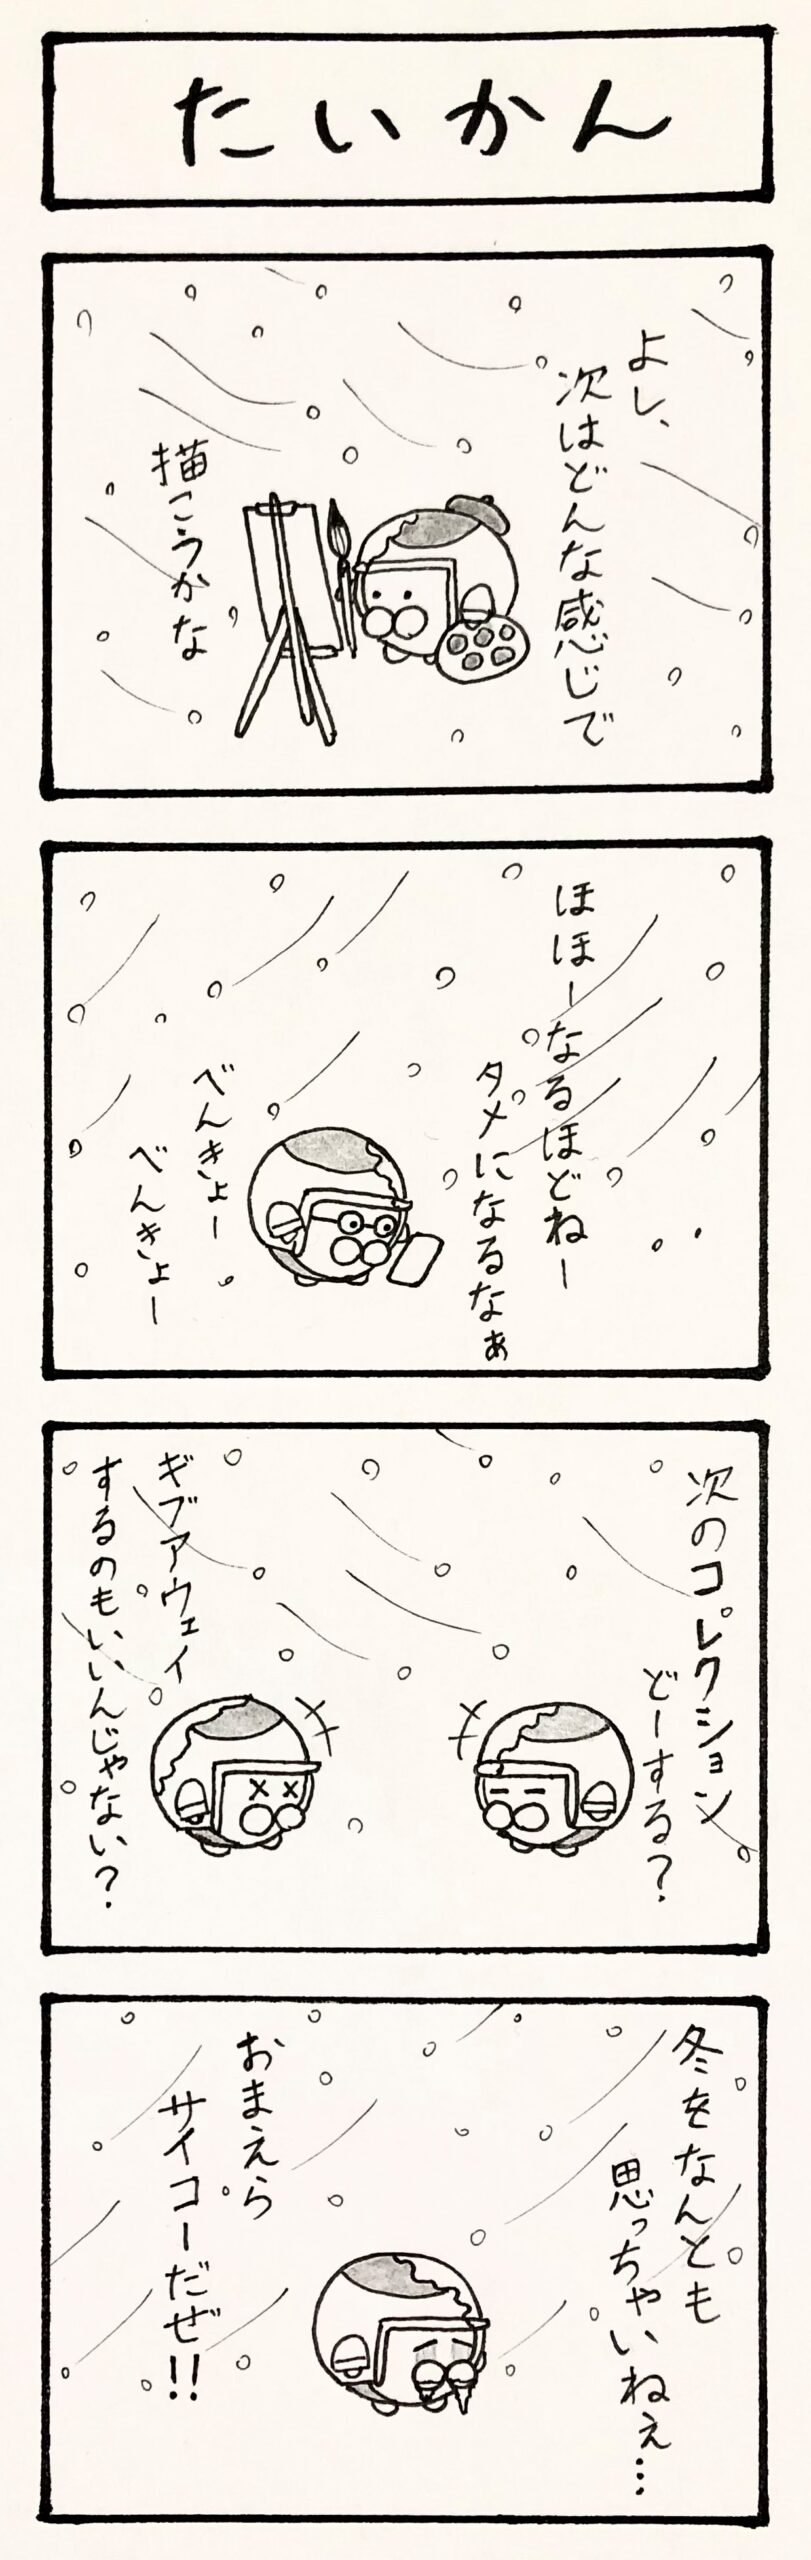 たいかん
よし、
次はどんな感じで
描こうかな
ほほーなるほどねー
タメになるなぁ
べんきょー
べんきょー
次のコレクション
どーする？
ギブアウェイ
するのもいいんじゃない？
冬をなんとも
思っちゃいねぇ…
おまえら
サイコーだぜ!!